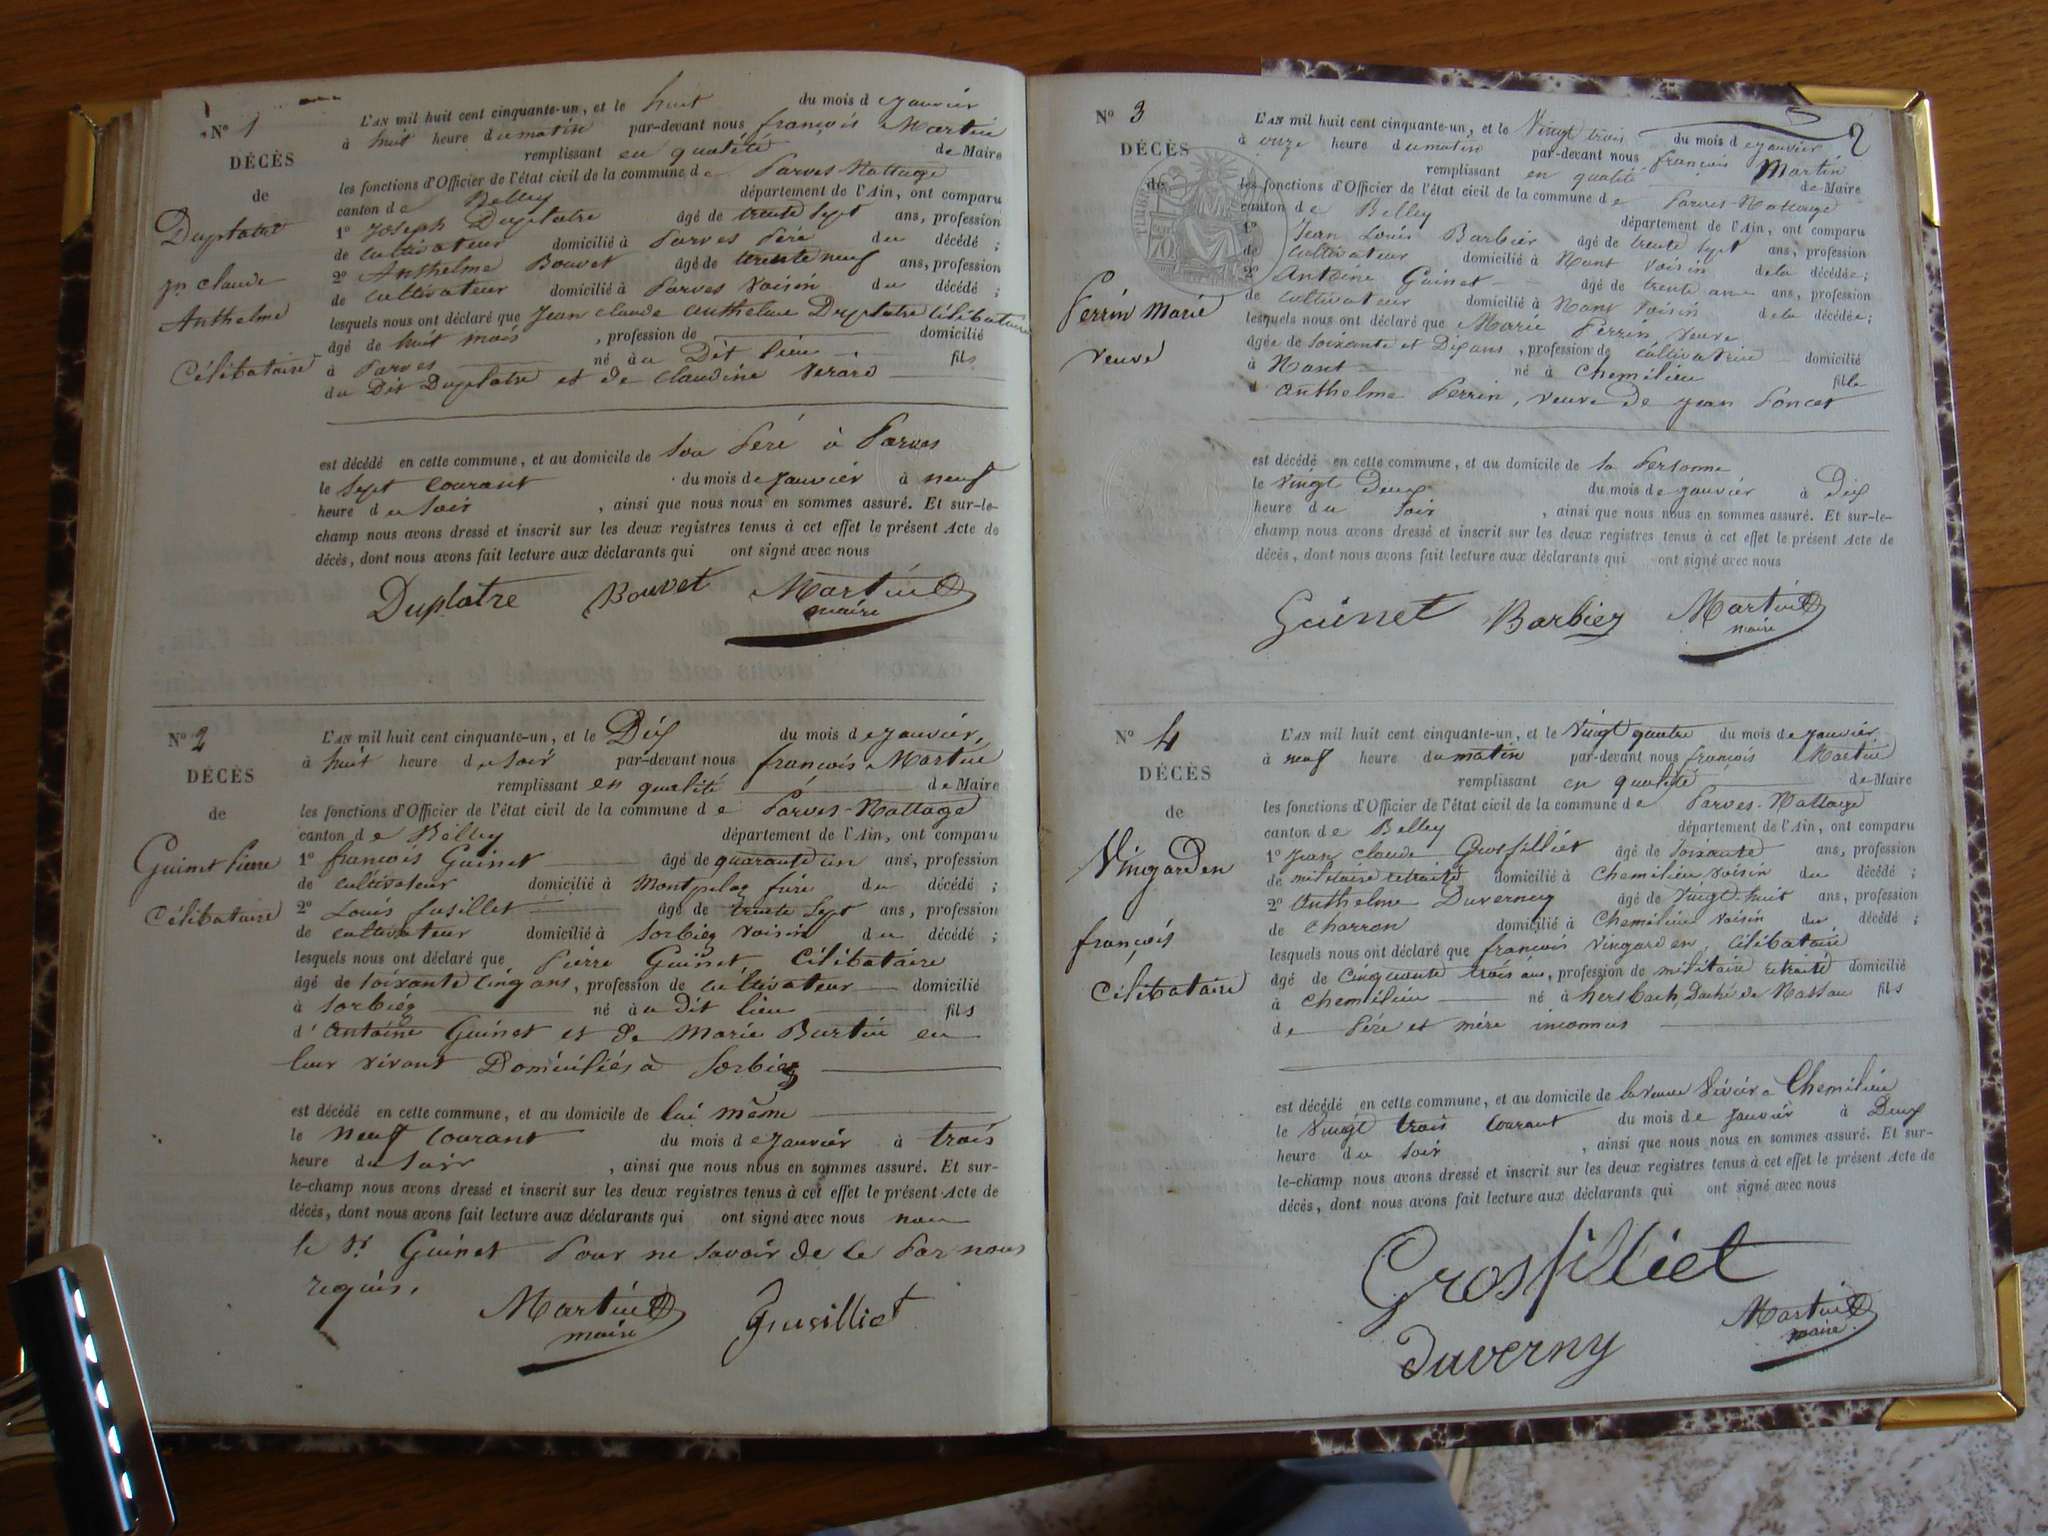 N° 1
DÉCÈS
de
Duplatre
Jn claude
Anthelme
Célibataire
L'AN mil huit cent cinquante-un, et le huit du mois de janvier
à huit heure du matin par-devant nous françois Martin
remplissant en qualité de Maire
les fonctions d'Officier de l'état civil de la commune de Parves-Nattage
canton de Belley département de l'Ain, ont comparu
1° Joseph Duplatre âgé de trente sept ans, profession
de cultivateur domicilié à Parves Péré du décédé ;
2° Anthelme Bouvet âgé de trente neuf ans, profession
de cultivateur domicilié à Parves Voisin du décédé ;
lesquels nous ont déclaré que Jean claude anthelme Duplatre Célibataire
âgé de huit mois , profession de domicilié
à Parves né à au Dit lieu fils
du Dit Duplatre et de claudine Verard
est décédé en cette commune, et au domicile de son Péré à Parves
le sept courant du mois de janvier à neuf
heure du soir , ainsi que nous nous en sommes assuré. Et sur-le-
champ nous avons dressé et inscrit sur les deux registres tenus à cet effet le présent Acte de
décès, dont nous avons fait lecture aux déclarants qui ont signé avec nous
Duplatre Bouvet Martin
maire
N° 2
DÉCÈS
de
Guinet Pierre
Célibataire
L'AN mil huit cent cinquante-un, et le Dix du mois de janvier,
à huit heure du soir par-devant nous françois Martin
remplissant en qualité de Maire
les fonctions d'Officier de l'état civil de la commune de Parves-Nattage
canton de Belley département de l'Ain, ont comparu
1° françois Guinet âgé de quarante un ans, profession
de cultivateur domicilié à Montpelaz frére du décédé ;
2° Louis fusillet âgé de trente sept ans, profession
de cultivateur domicilié à Sorbiez voisin du décédé ;
lesquels nous ont déclaré que Pierre Guinet, Célibataire
âgé de soixante cinq ans, profession de cultivateur domicilié
à Sorbiez né à au dit lieu fils
d' Antoine Guinet et de Marie Burtin en
leur vivant Domiciliés à Sorbiez
est décédé en cette commune, et au domicile de lui même
le neuf courant du mois de janvier à trois
heure du soir , ainsi que nous nous en sommes assuré. Et sur-
le-champ nous avons dressé et inscrit sur les deux registres tenus à cet effet le présent Acte de
décès, dont nous avons fait lecture aux déclarants qui ont signé avec nous non
le Sr Guinet Pour ne savoir de ce Par nous
requis.
Martin
maire
fusilliet
N° 3
2
DÉCÈS
de
Perrin Marie
veuve
L'AN mil huit cent cinquante-un, et le Vingt trois du mois de janvier
à onze heure du matin par-devant nous françois Martin
remplissant en qualité de Maire
les fonctions d'Officier de l'état civil de la commune de Parves-Nattage
canton de Belley département de l'Ain, ont comparu
1° Jean Louis Barbier âgé de trente sept ans, profession
de cultivateur domicilié à Nant voisin de la décédée ;
2° Antoine Guinet âgé de trente ans, profession
de cultivateur domicilié à Nant voisin de la décédée ;
lesquels nous ont déclaré que Marie Perrin veuve
âgée de soixante et Dix ans , profession de cultivatrice domicilié
à Nant né à Chemilieu fille
d' anthelme Perrin, veuve de jean Poncet
est décédé en cette commune, et au domicile de sa Personne
le vingt Deux du mois de janvier à Dix
heure du soir , ainsi que nous nous en sommes assuré. Et sur-le-
champ nous avons dressé et inscrit sur les deux registres tenus à cet effet le présent Acte de
décès, dont nous avons fait lecture aux déclarants qui ont signé avec nous
Guinet Barbier Martin
maire
N° 4
DÉCÈS
de
Vingarden
françois
Célibataire
L'AN mil huit cent cinquante-un, et le vingt quatre du mois de janvier
à neuf heure du matin par-devant nous françois Martin
remplissant en qualité de Maire
les fonctions d'Officier de l'état civil de la commune de Parves-Nattage
canton de Belley département de l'Ain, ont comparu
1° Jean claude Grosfilliet âgé de soixante ans, profession
de militaire retraité domicilié à Chemilieu voisin du décédé ;
2° Anthelme Duverney âgé de vingt-huit ans, profession
de charron domicilié à Chemilieu voisin du décédé ;
lesquels nous ont déclaré que françois vingarden, célibataire
âgé de cinquante trois ans, profession de militaire retraité domicilié
à Chemilieu né à hersbach, Duché de Nassau fils
de Pére et mére inconnus
est décédé en cette commune, et au domicile de la veuve à Chemilieu
le vingt trois courant du mois de janvier à Deux
heure du soir , ainsi que nous nous en sommes assuré. Et sur-
le-champ nous avons dressé et inscrit sur les deux registres tenus à cet effet le présent Acte de
décès, dont nous avons fait lecture aux déclarants qui ont signé avec nous
Grosfilliet
Martin
maire
Duverny